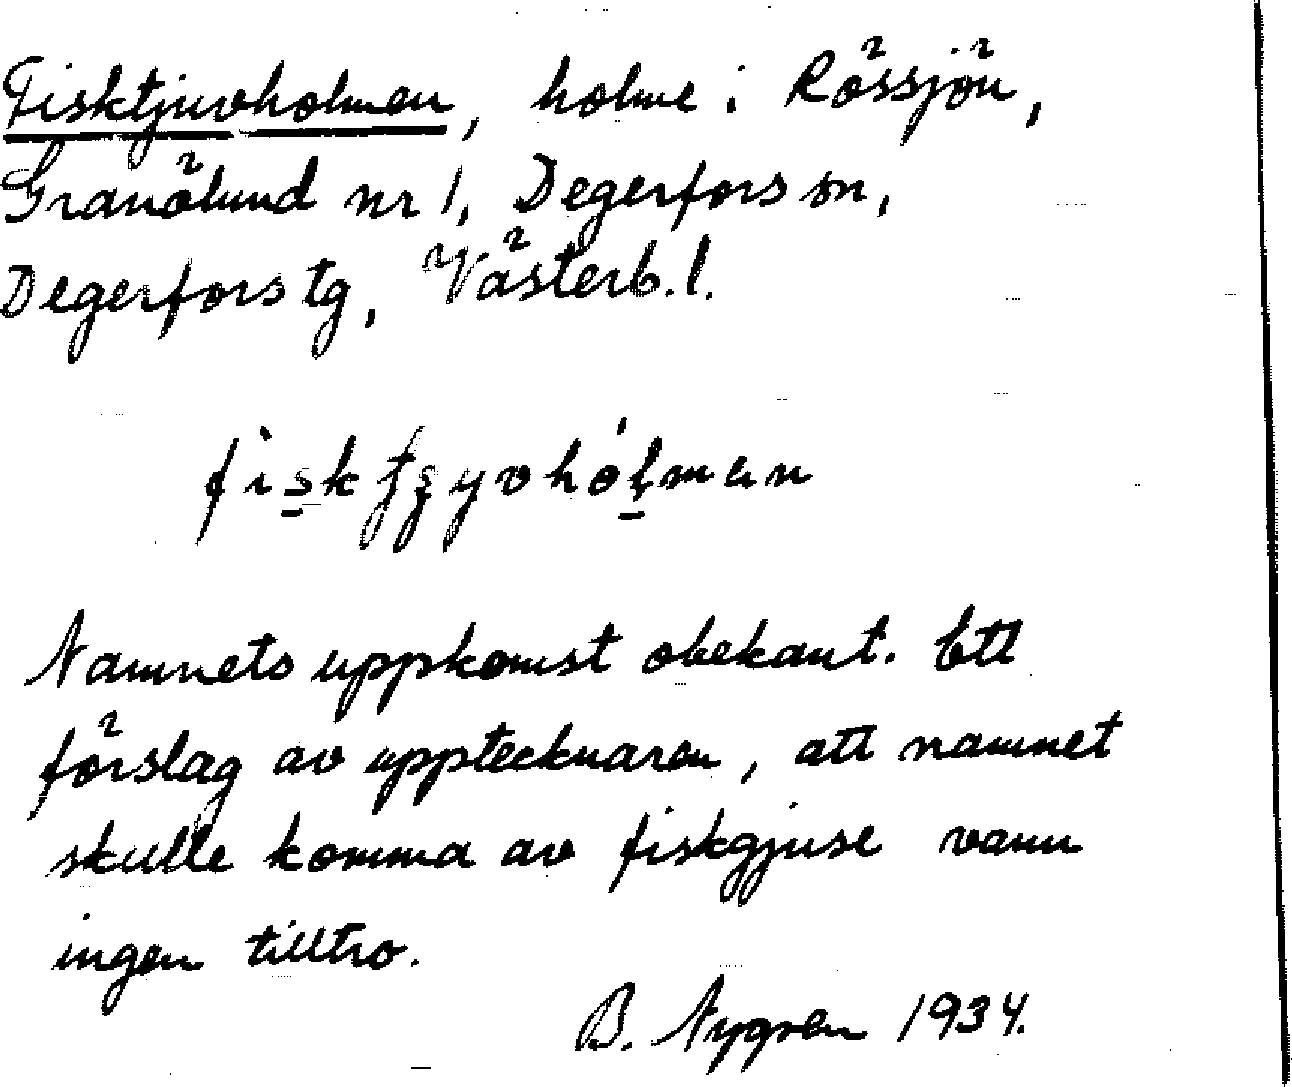 Fisktjuvholmen, holme i Rössjön,
Granölund nr 1, Degerfors sn,
Degerfors tg, Västerb. l.
Namnets uppkomst obekant. Ett
förslag av upptecknaren, att namnet
skulle komma av fiskgjuse vann
ingen tilltro.
B. Nygren 1934.